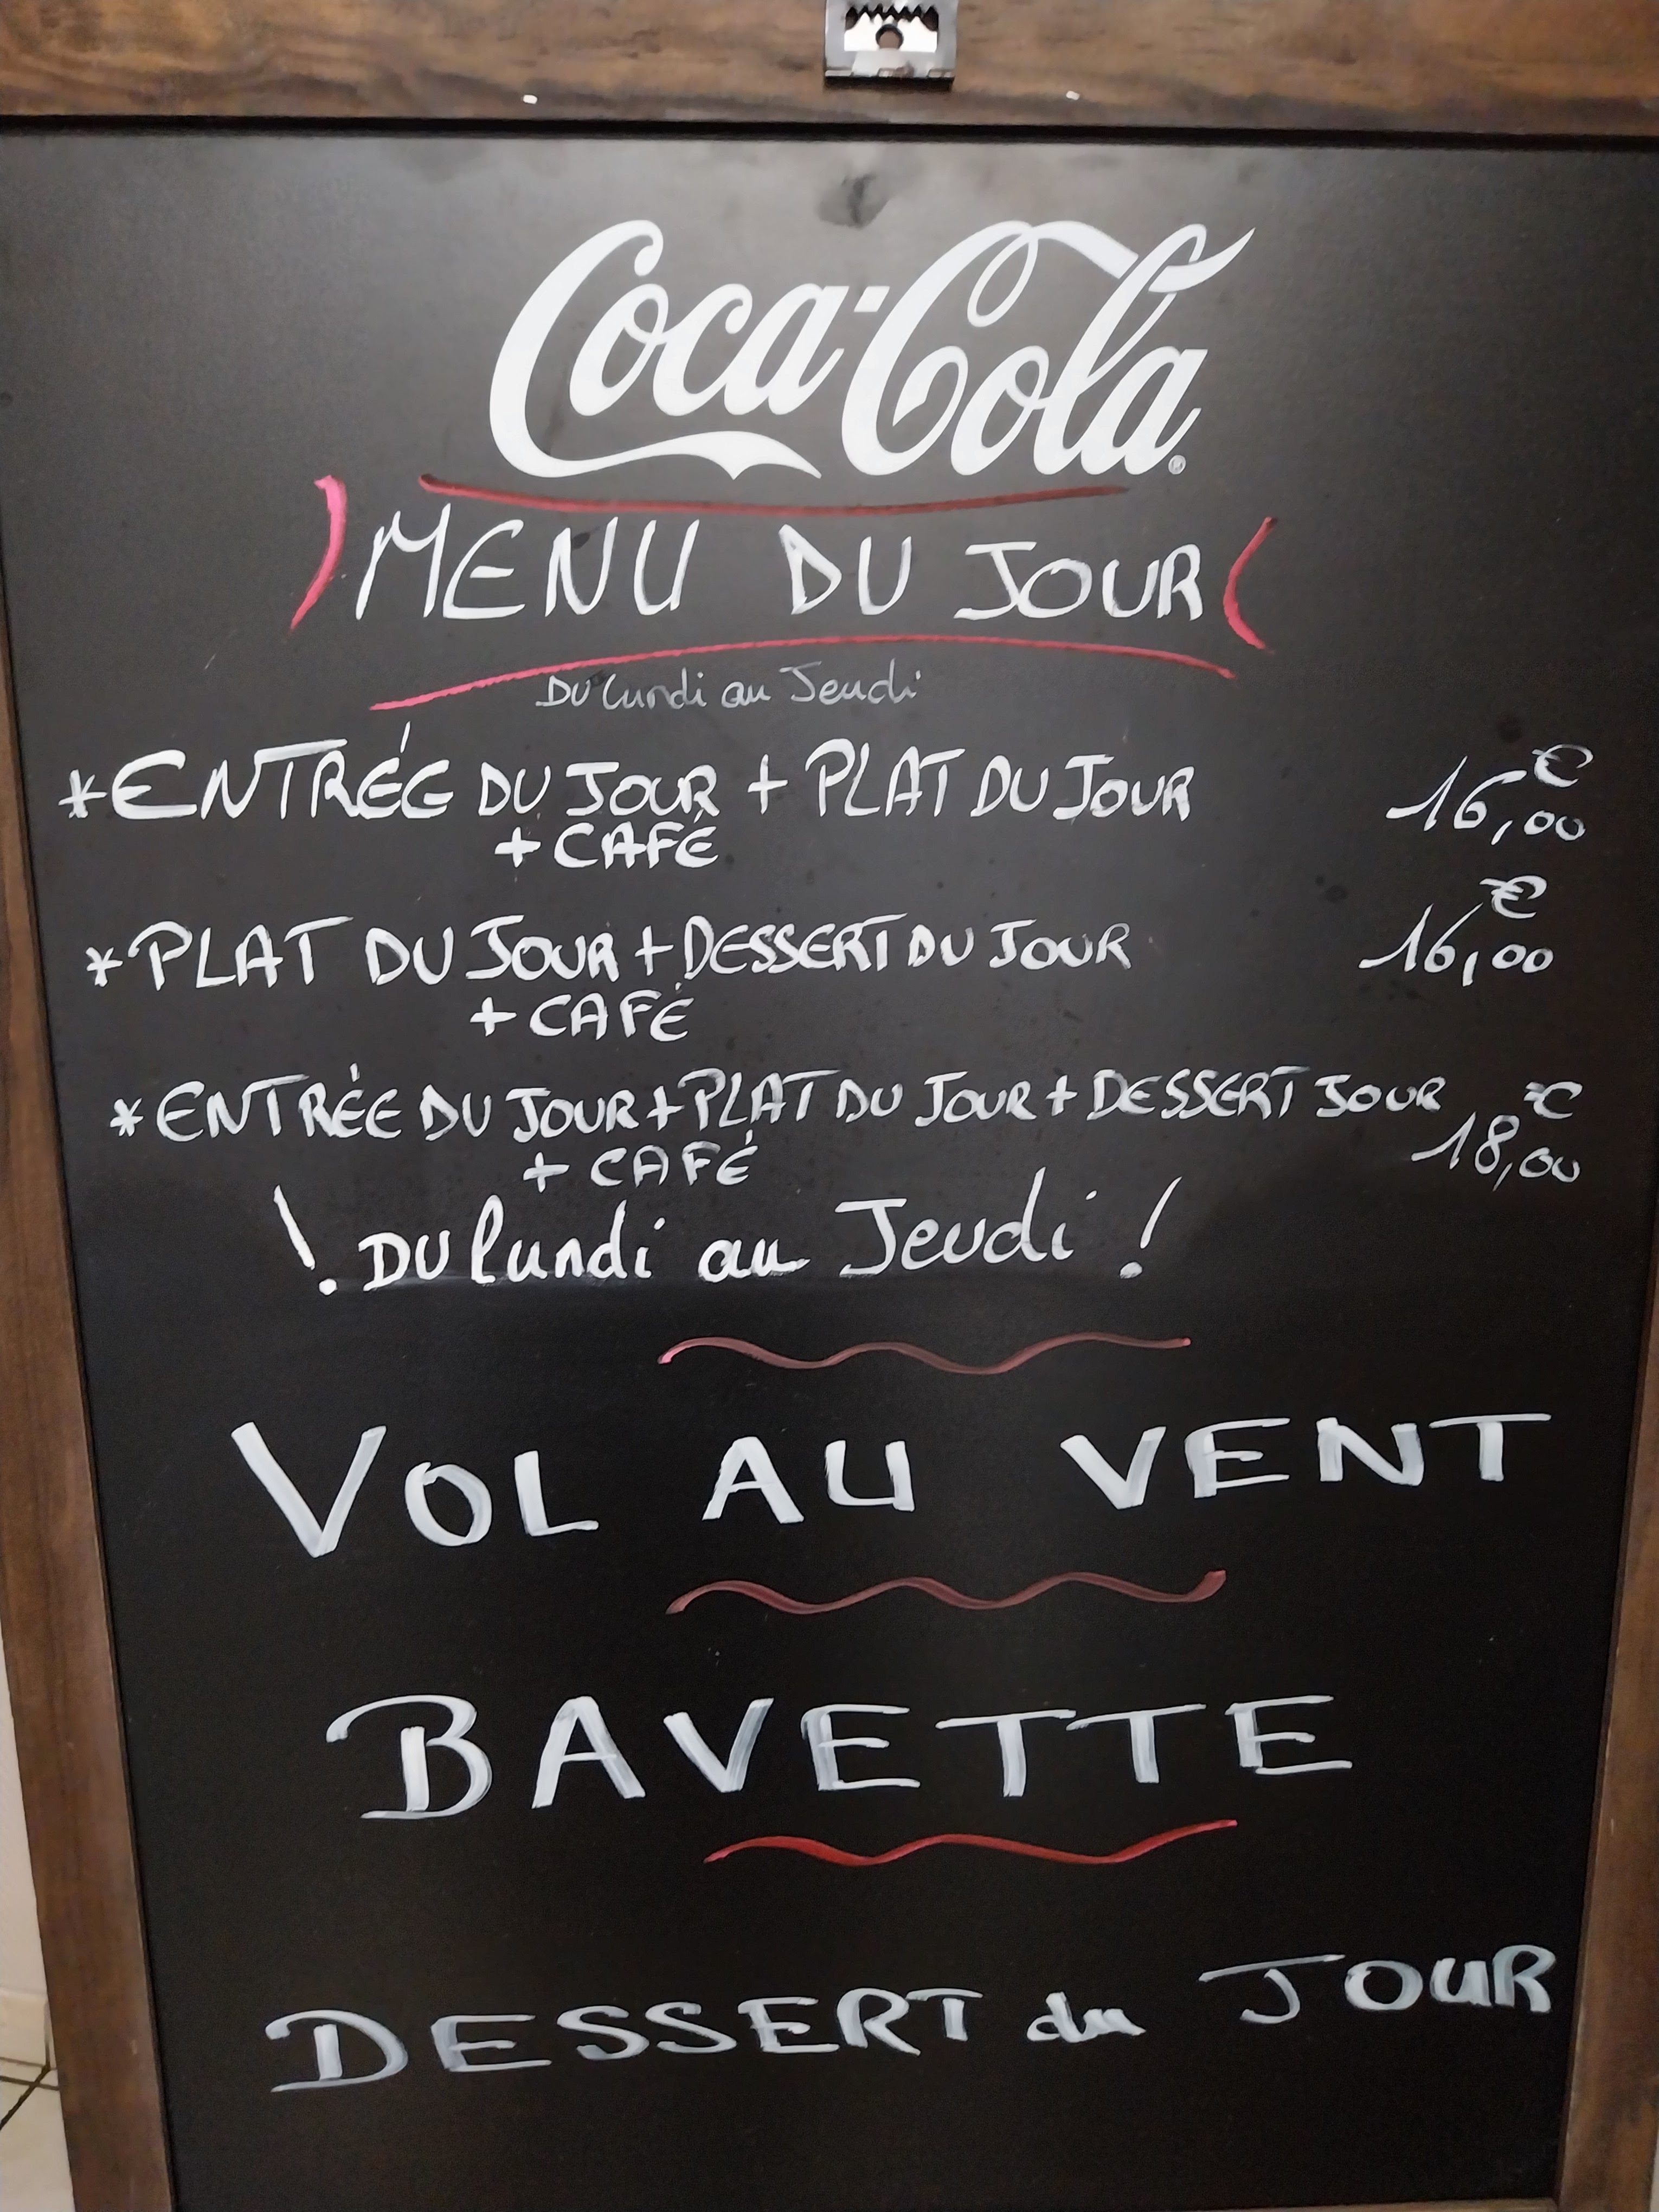 Coca-Cola
MENU DU JOUR
DU lundi au Jeudi
*ENTRÉE DU JOUR + PLAT DU JOUR 16,00 €
+ CAFÉ
*PLAT DU JOUR + DESSERT DU JOUR 16,00 €
+ CAFÉ
*ENTRÉE DU JOUR + PLAT DU JOUR + DESSERT JOUR 18,00 €
+ CAFÉ
! DU lundi au Jeudi !
VOL AU VENT
BAVETTE
DESSERT du JOUR